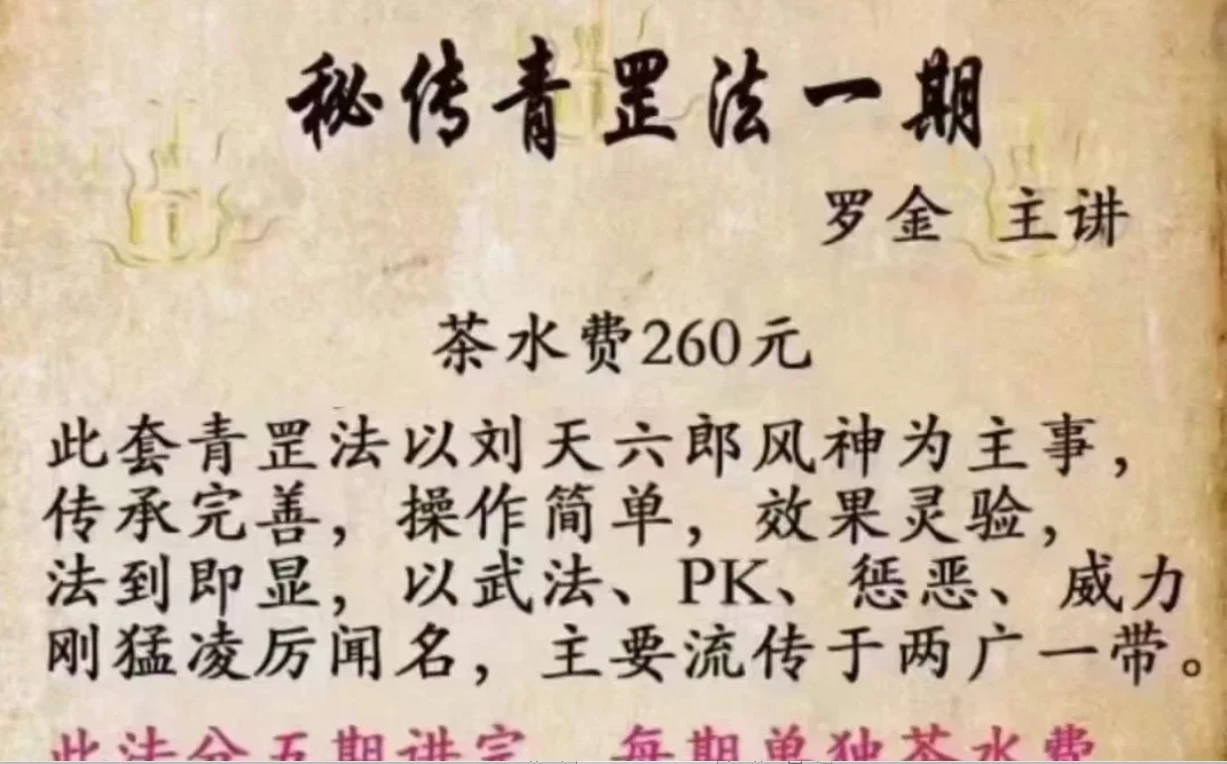 秘传青罡法一期
罗金 主讲
茶水费260元
此套青罡法以刘天六郎风神为主事，
传承完善，操作简单，效果灵验，
法到即显，以武法、PK、惩恶、威力
刚猛凌厉闻名，主要流传于两广一带。
此法分五期讲完 每期单独茶水费